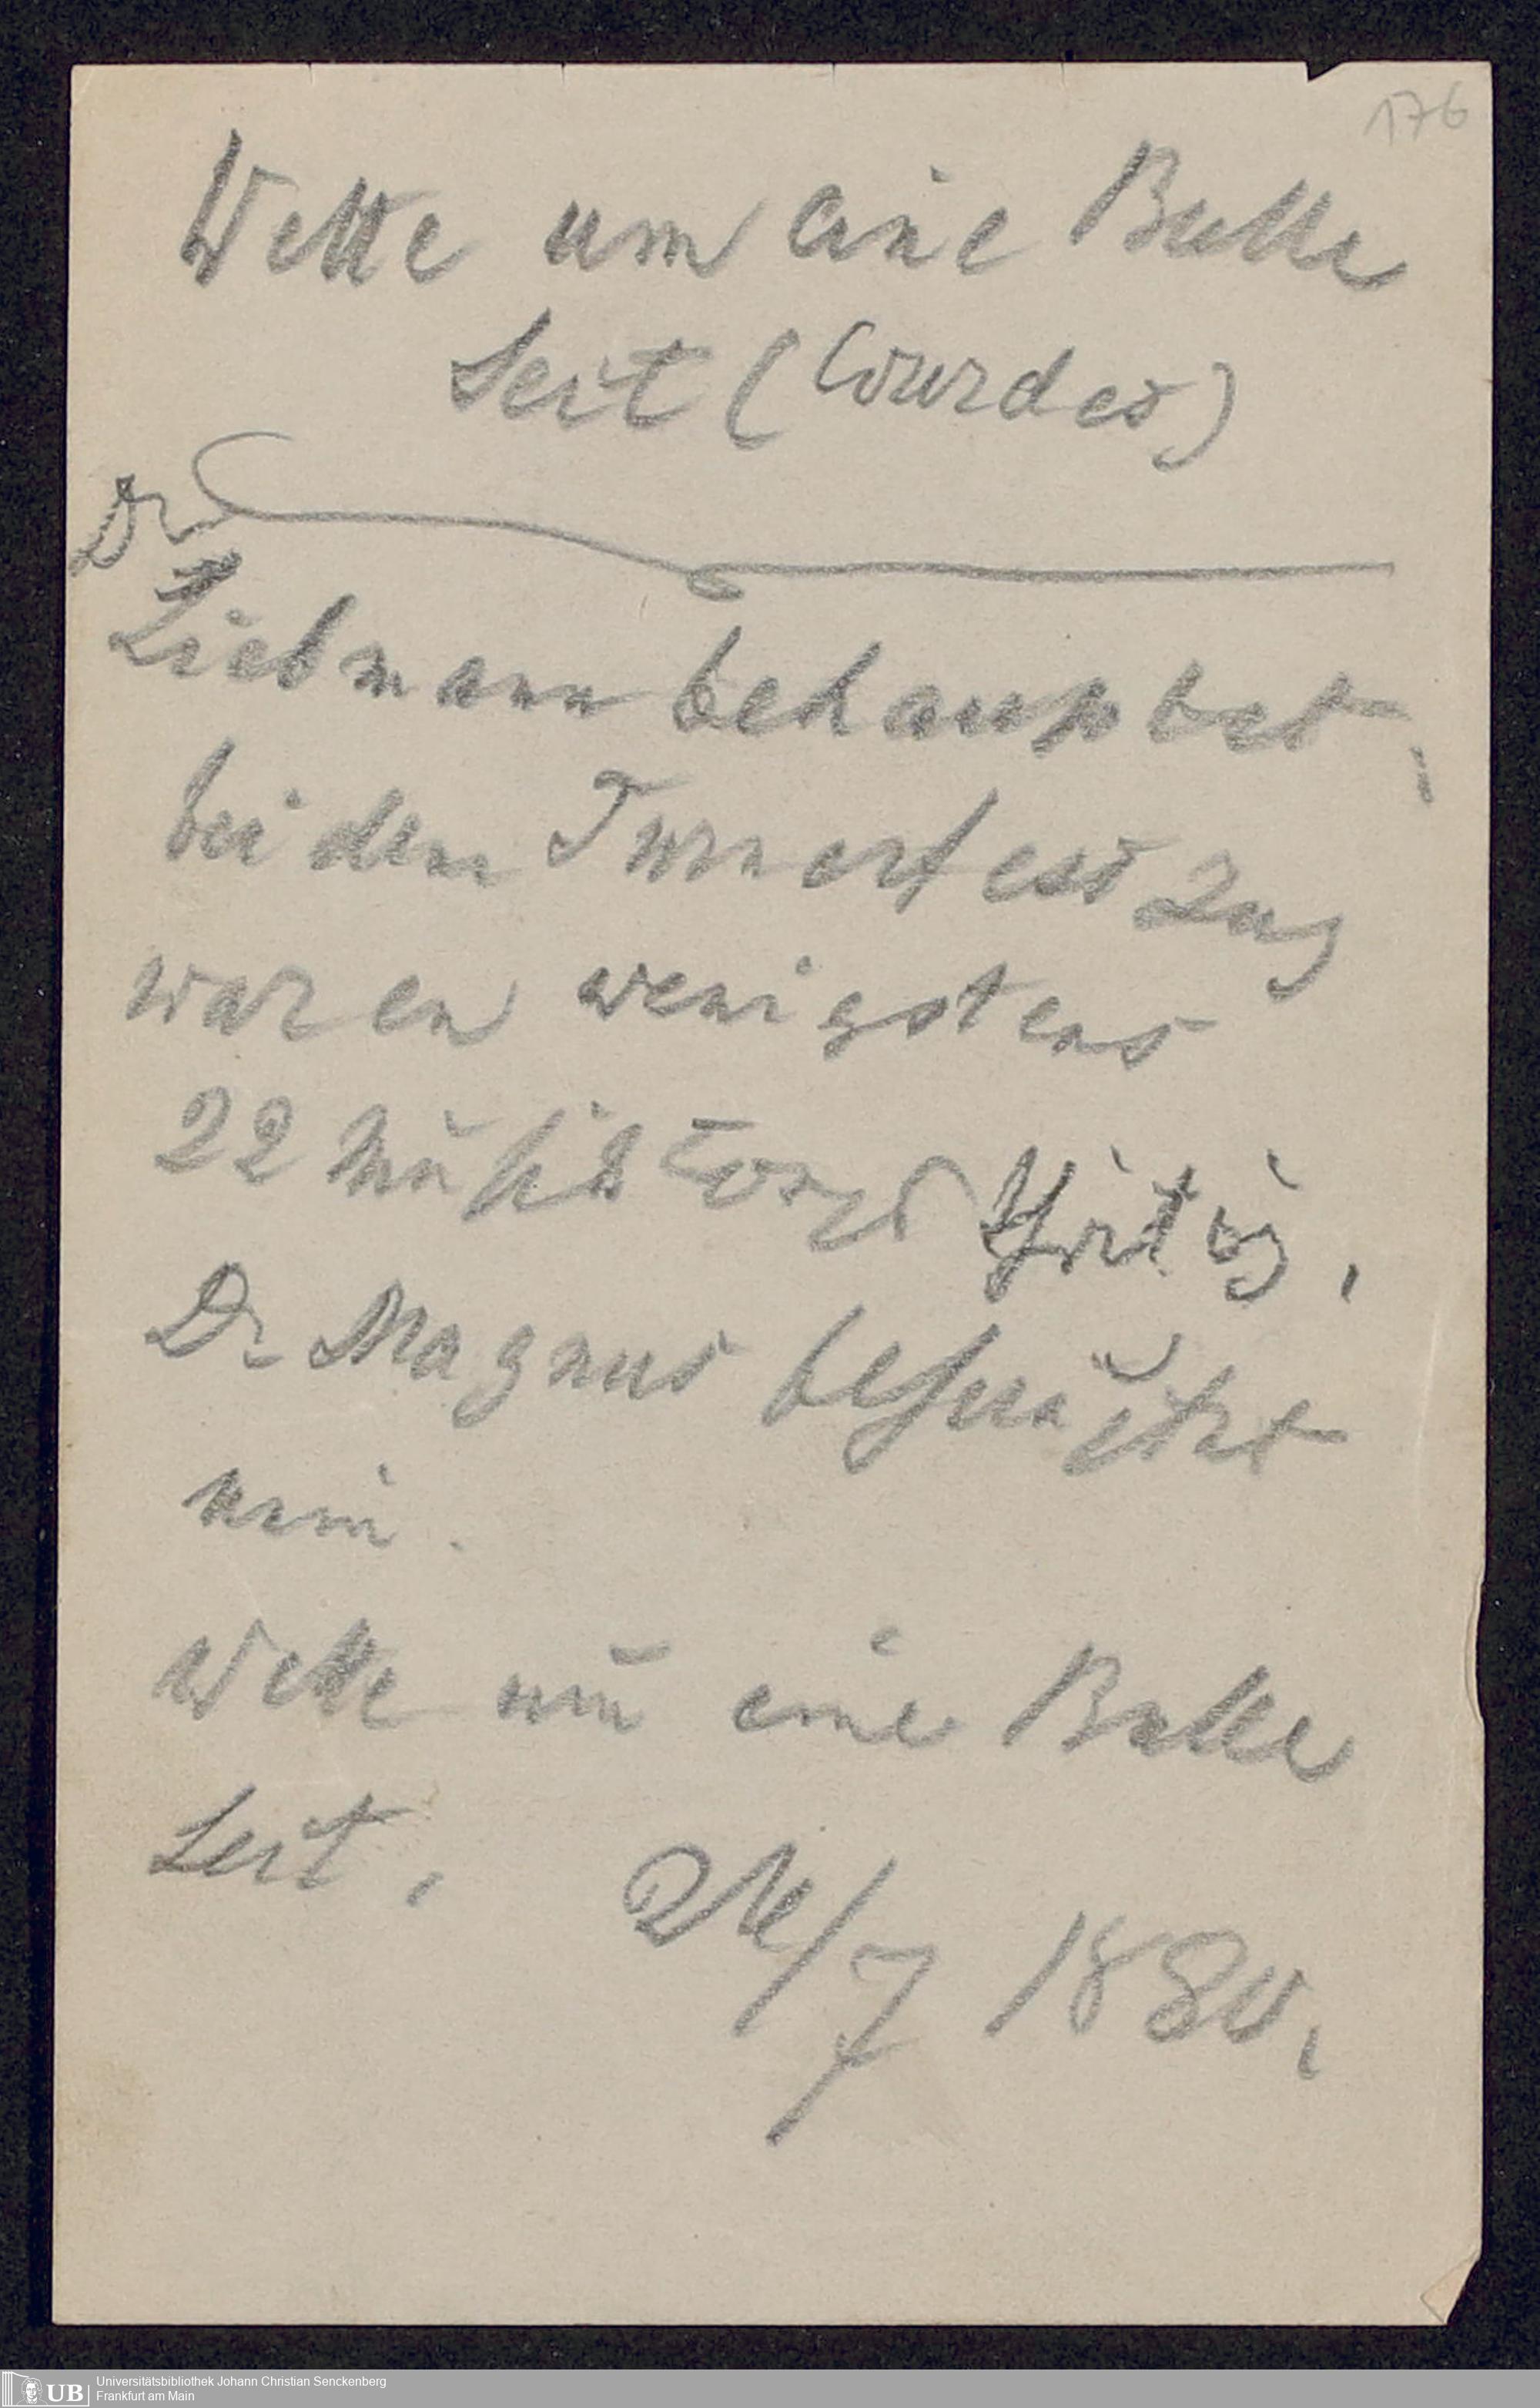 176
Wette um eine Butte
Seit (Courdes)
Dr
Liebmann behauptet,
bei dem Turnerfest Zug
waren wenigstens
22 Musik Corps thätig,
Dr Magnus
nein.
Wette um eine Butte
Seit,  24/7 1880,
UB Universitätsbibliothek Johann Christian Senckenberg
Frankfurt am Main